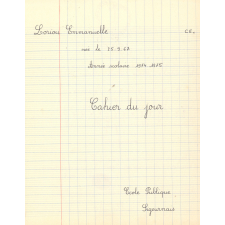 Loriou Emmanuelle CE1
née le 25.9.67
Année scolaire 1974 1975
Cahier du jour
École Publique